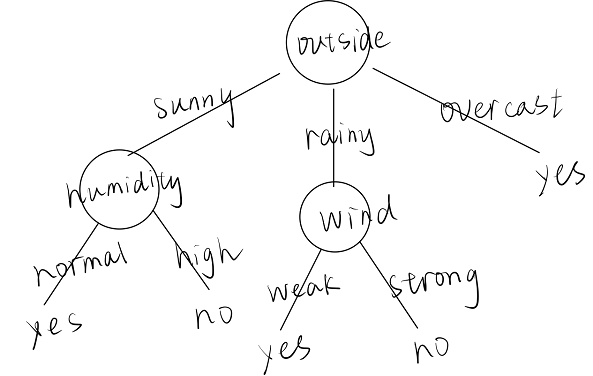 outside
sunny
rainy
overcast
humidity
wind
yes
normal
high
weak
strong
yes
no
yes
no